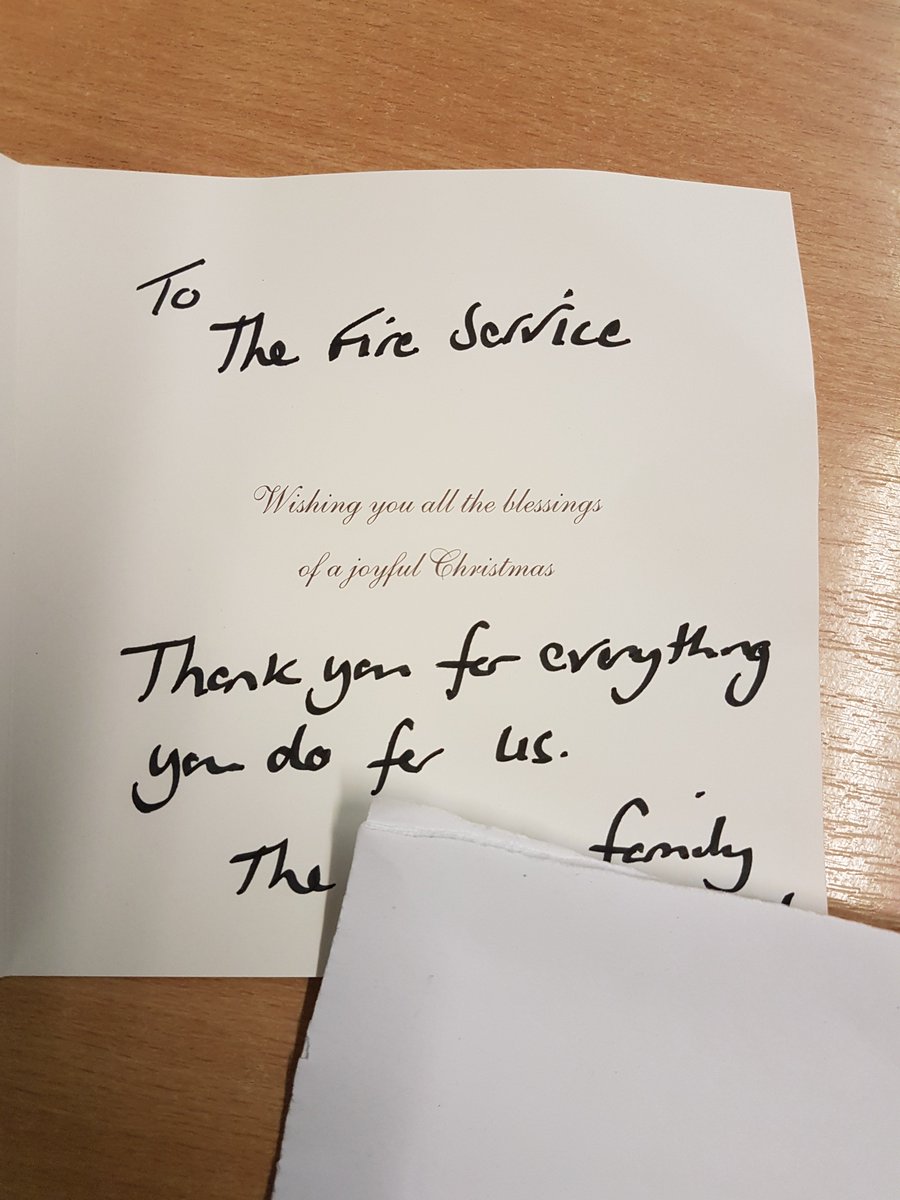 To
The Fire Service
Wishing you all the blessings
of a joyful Christmas
Thank you for everything
you do for us.
The family